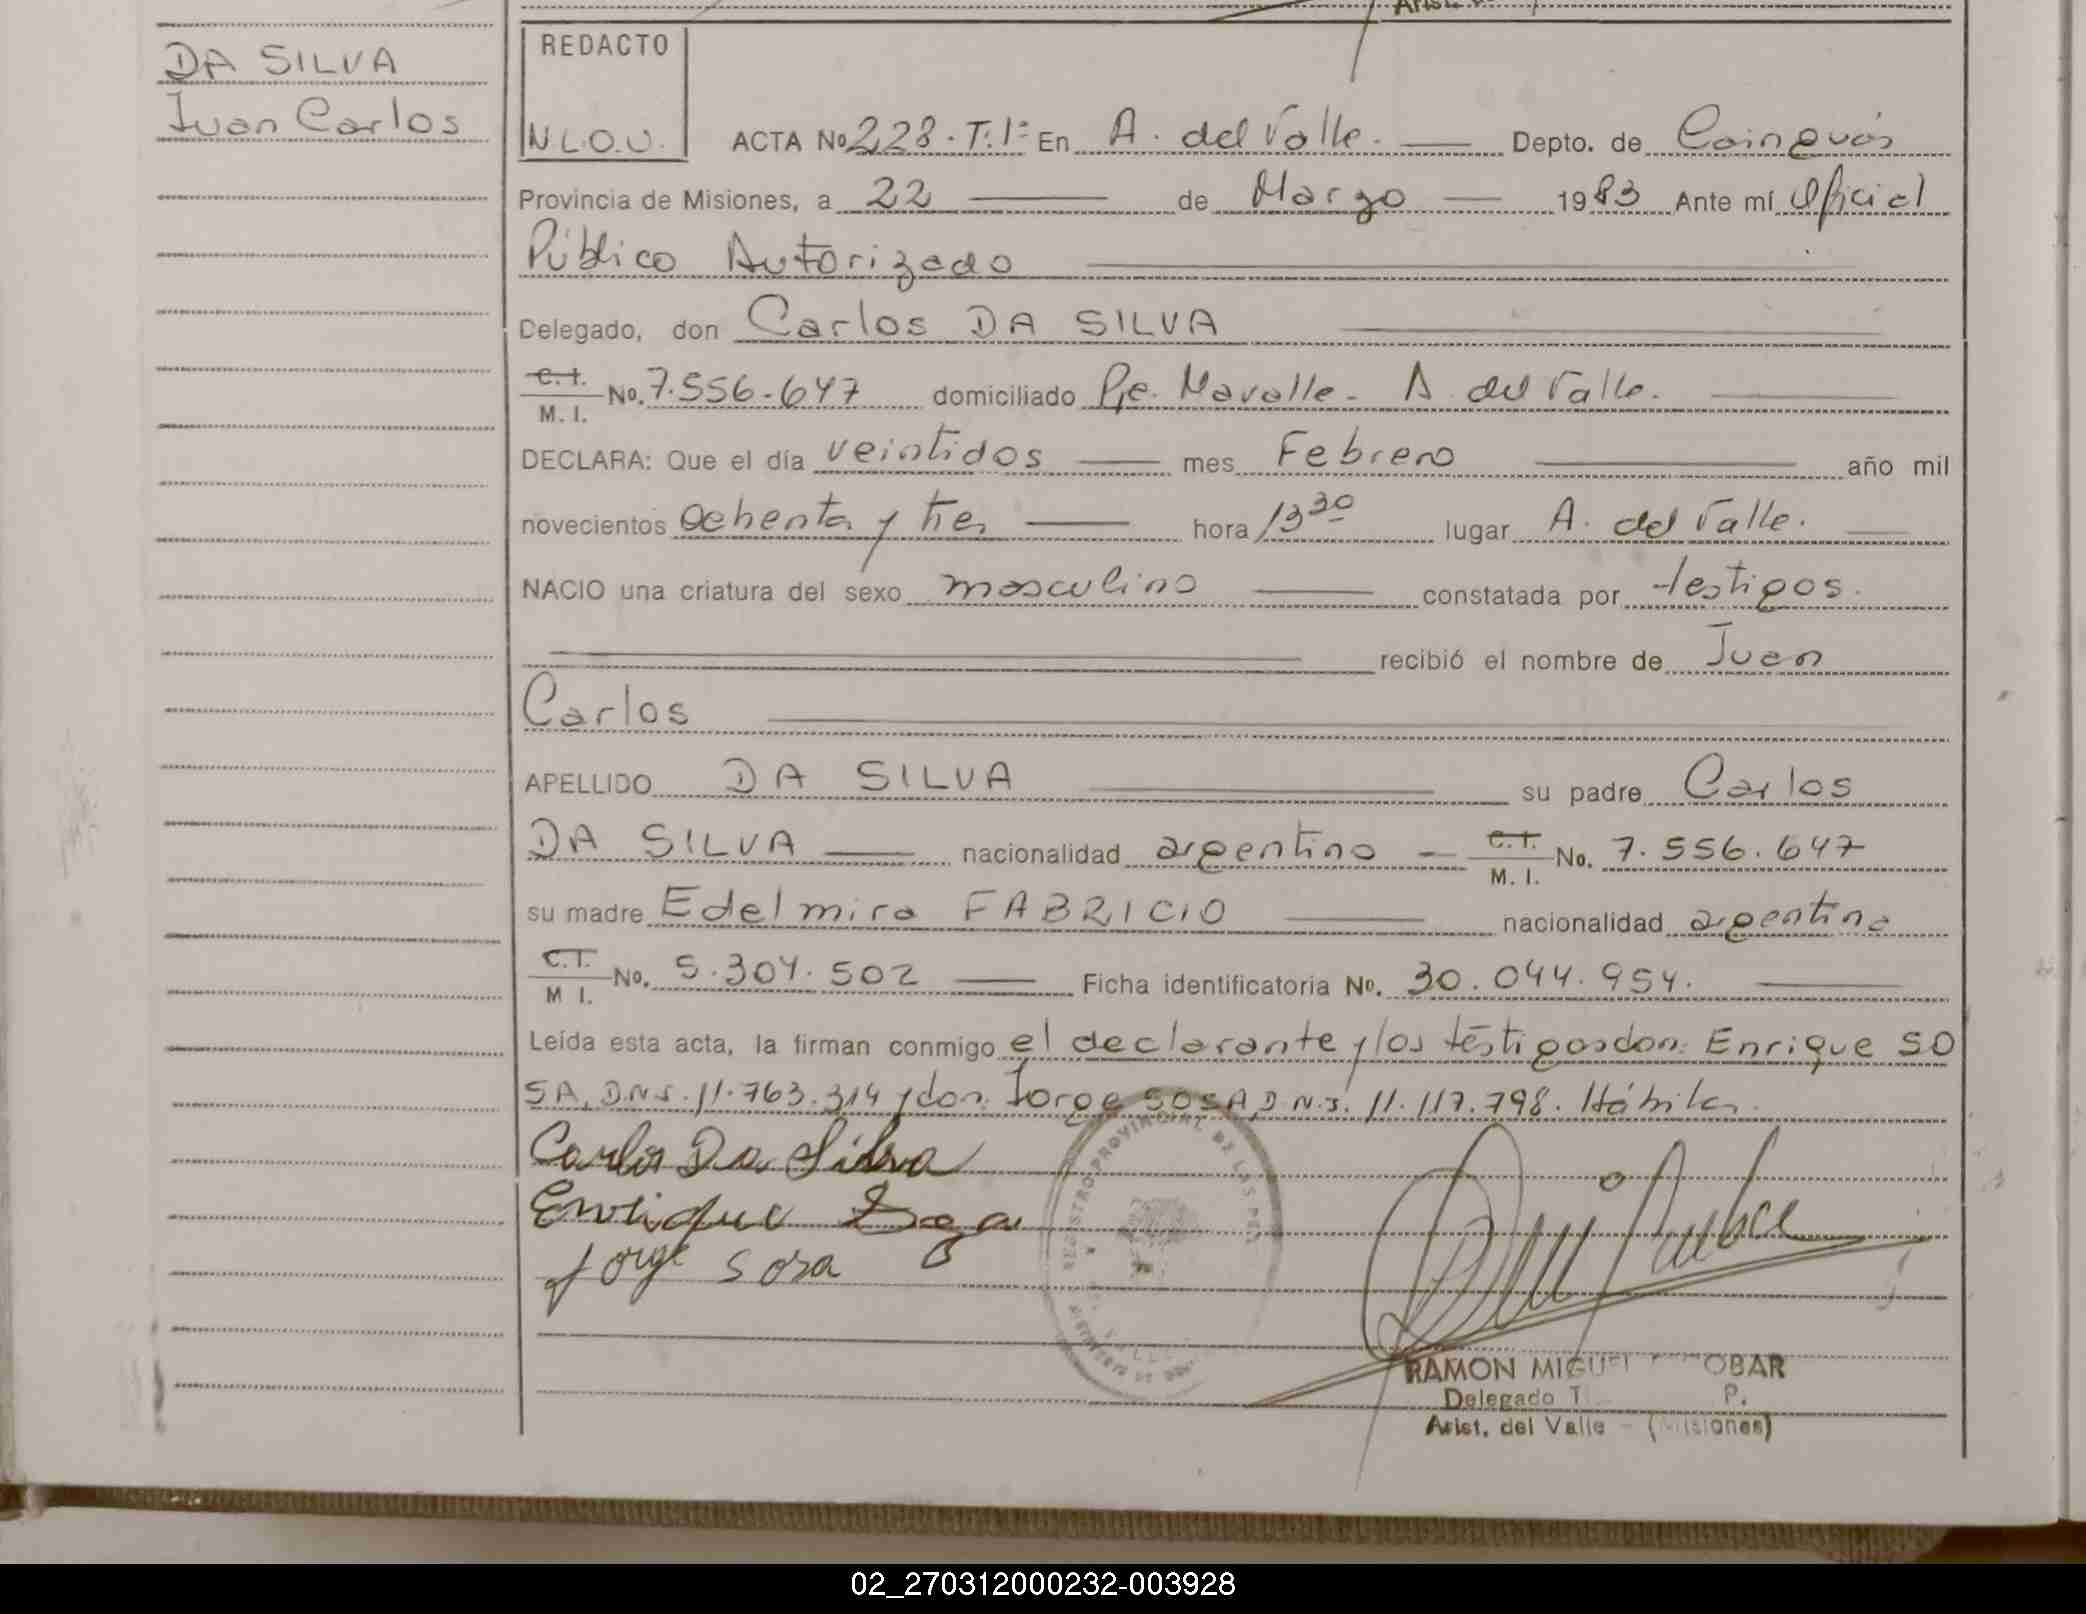 DA SILVA
Juan Carlos
REDACTO
N.L.O.U.
ACTA No 228 - T: 1º En A. del Valle. Depto. de Cainguás
Provincia de Misiones, a 22 de Marzo 1983 Ante mí Oficial
Público Autorizado
Delegado, don Carlos DA SILVA
C.I. M. I. No. 7.556.647 domiciliado Pje. Mavalle - A del Valle.
DECLARA: Que el día veintidos mes Febrero año mil
novecientos ochenta y tres hora 13 30 lugar A. del Valle.
NACIO una criatura del sexo masculino constatada por testigos.
recibió el nombre de Juan
Carlos
APELLIDO DA SILVA su padre Carlos
DA SILVA nacionalidad argentino C.I. M. I. No. 7.556.647
su madre Edelmira FABRICIO nacionalidad argentina
C.I. M I. No. 5.304.502 Ficha identificatoria No. 30.044.954.
Leída esta acta, la firman conmigo el declarante y los testigos don: Enrique SO
SA, D.N.I. 11.763.314 y don: Jorge SOSA D.N.I. 11.117.798. Hábiles.
Carlos Da Silva
Enrique Sosa
Jorge Sosa
REGISTRO PROVINCIAL DE LAS PER
RAMON MIGUEL OBAR
Delegado T P.
Arist. del Valle - (Misiones)
02_270312000232-003928